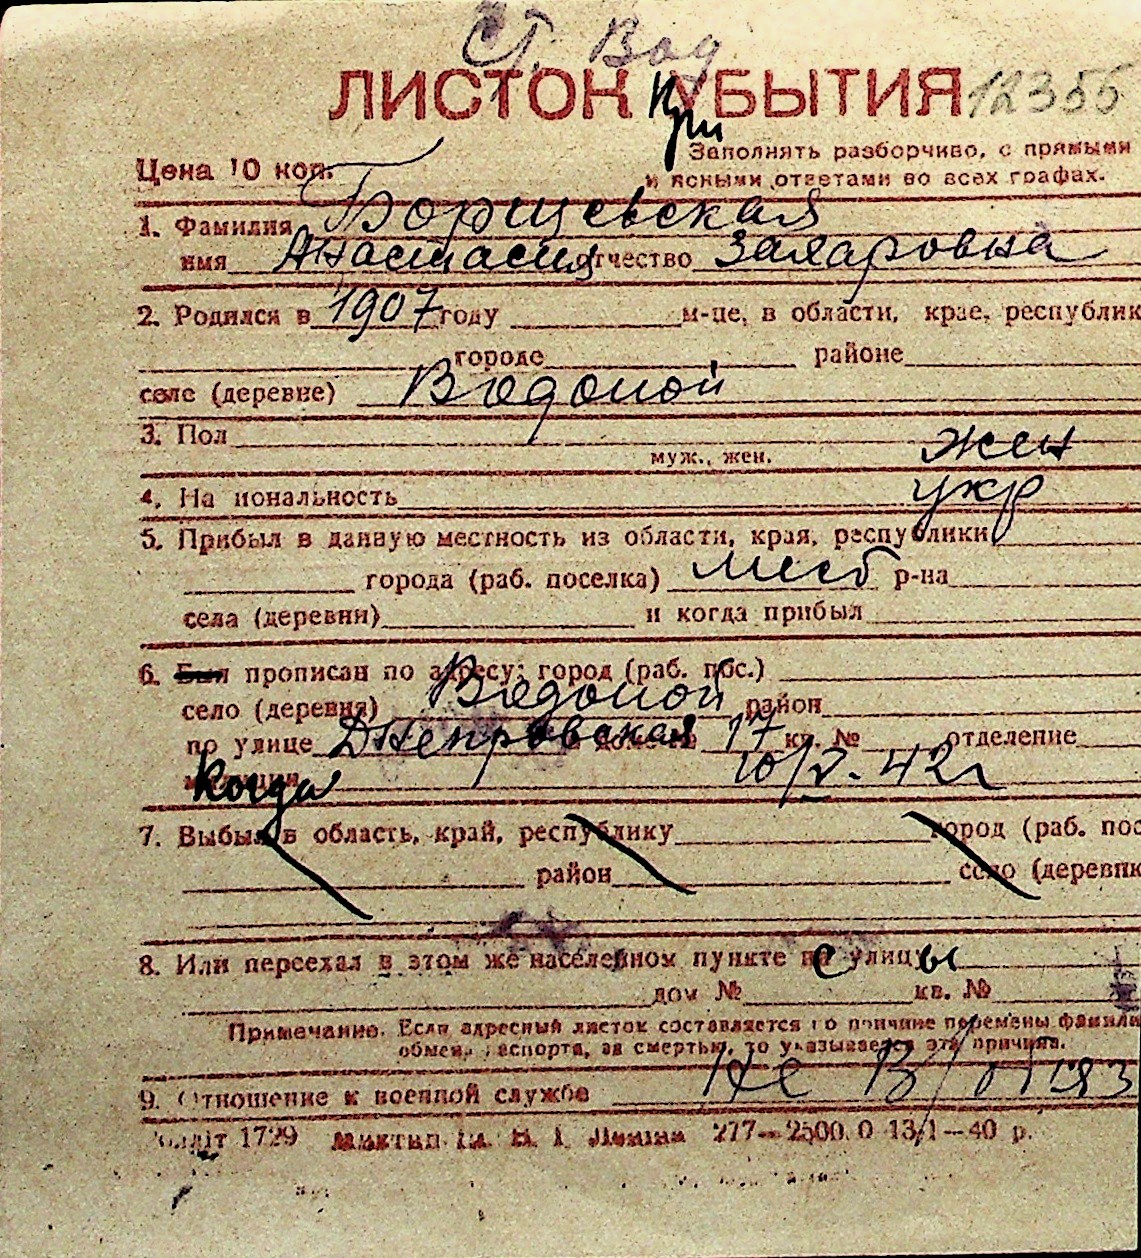 Ст. Вод
ЛИСТОК при УБЫТИЯ 12355
Цена 10 коп.
Заполнять разборчиво, с прямыми
и ясными ответами во всех графах.
1. Фамилия Борщевская
имя Анастасия отчество Захаровна
2. Родился в 1907 году м-це, в области, крае, республик
городе районе
селе (деревне) Водопой
3. Пол жен
муж., жен.
4. На иональность укр
5. Прибыл в данную местность из области, края, республики
города (раб. поселка) р-на
села (деревни) и когда прибыл
6. Был прописан по адресу: город (раб. пос.)
село (деревня) Водопой район
по улице Днепровская 17 кв. № отделение
когда 10/V. 42 г
7. Выбыл в область, край, республику город (раб. пос
район село (деревни
8. Или переехал в этом же населенном пункте с улицы
дом № кв. №
Примечание. Если адресный листок составляется по причине перемены фамили
обмен паспорта, за смертью, то указывается эта причина.
9. Отношение к военной службе не в/обяз
1729 277—2500. 0 13/1—40 р.